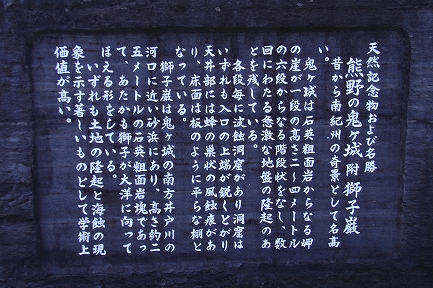 天然記念物および名勝
熊野の鬼ヶ城 附 獅子巖
昔から南紀州の奇景として名高
い。
鬼ヶ城は石英粗面岩からなる岬
の崖が一段の高さ二～四メートル
の六段からなる階段状をなし、数
回にわたる急激な地盤の隆起のあ
とを残している。
各段毎に波蝕洞窟があり洞窟は
いずれも入口の上端が鋭くとがり
天井部には蜂の巣状の風蝕痕があ
り、床面は板のように平らな棚と
なっている。
獅子巖は鬼ヶ城の南方井戸川の
河口に近い砂浜にあり、高さ約二
五メートルの石英粗面岩塊であっ
て、あたかも獅子が大洋に向って
ほえる形をしている。
いずれも土地の隆起と海蝕の現
象を示す著しいものとして学術上
価値が高い。